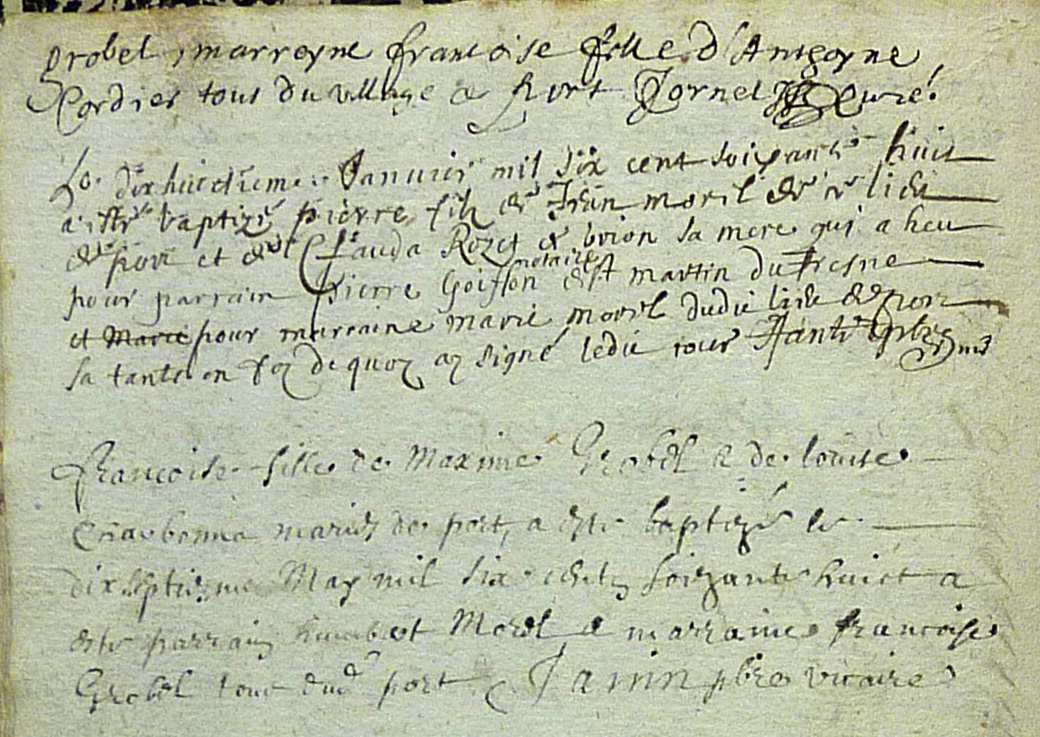 grobel, marreyne francoise fille d'Anthoyne
Cordier tous du village de Port Jornel Curé
Le dixhuictieme Janvier mil six cent soixante huit
a esté baptizé pierre filz de Jean morel de ce lieu
de port et de Clauda Rozet de brion sa mere qui a heu
pour parrain pierre Goiffon notaire de st martin du fresne
et Marie pour marraine marie morel dudit lieu de port
sa tante en foy de quoy ay signé ledit jour
francoise fille de Maxime Grobel & de louise
Charbonna mariés de port, a esté baptizée le
dix septieme May mil six cents soixante huict a
esté parrain humbert Morel & marraine francoise
Grobel tous dud port Janin pbre vicaire